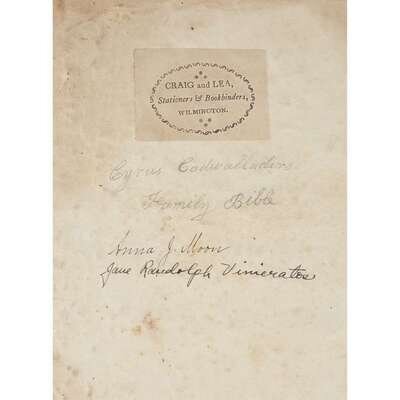 CRAIG and LEA,
Stationers & Bookbinders,
WILMINGTON.
Cyrus Cadwalladers
Family Bible
Anna J. Moon
Jane Randolph